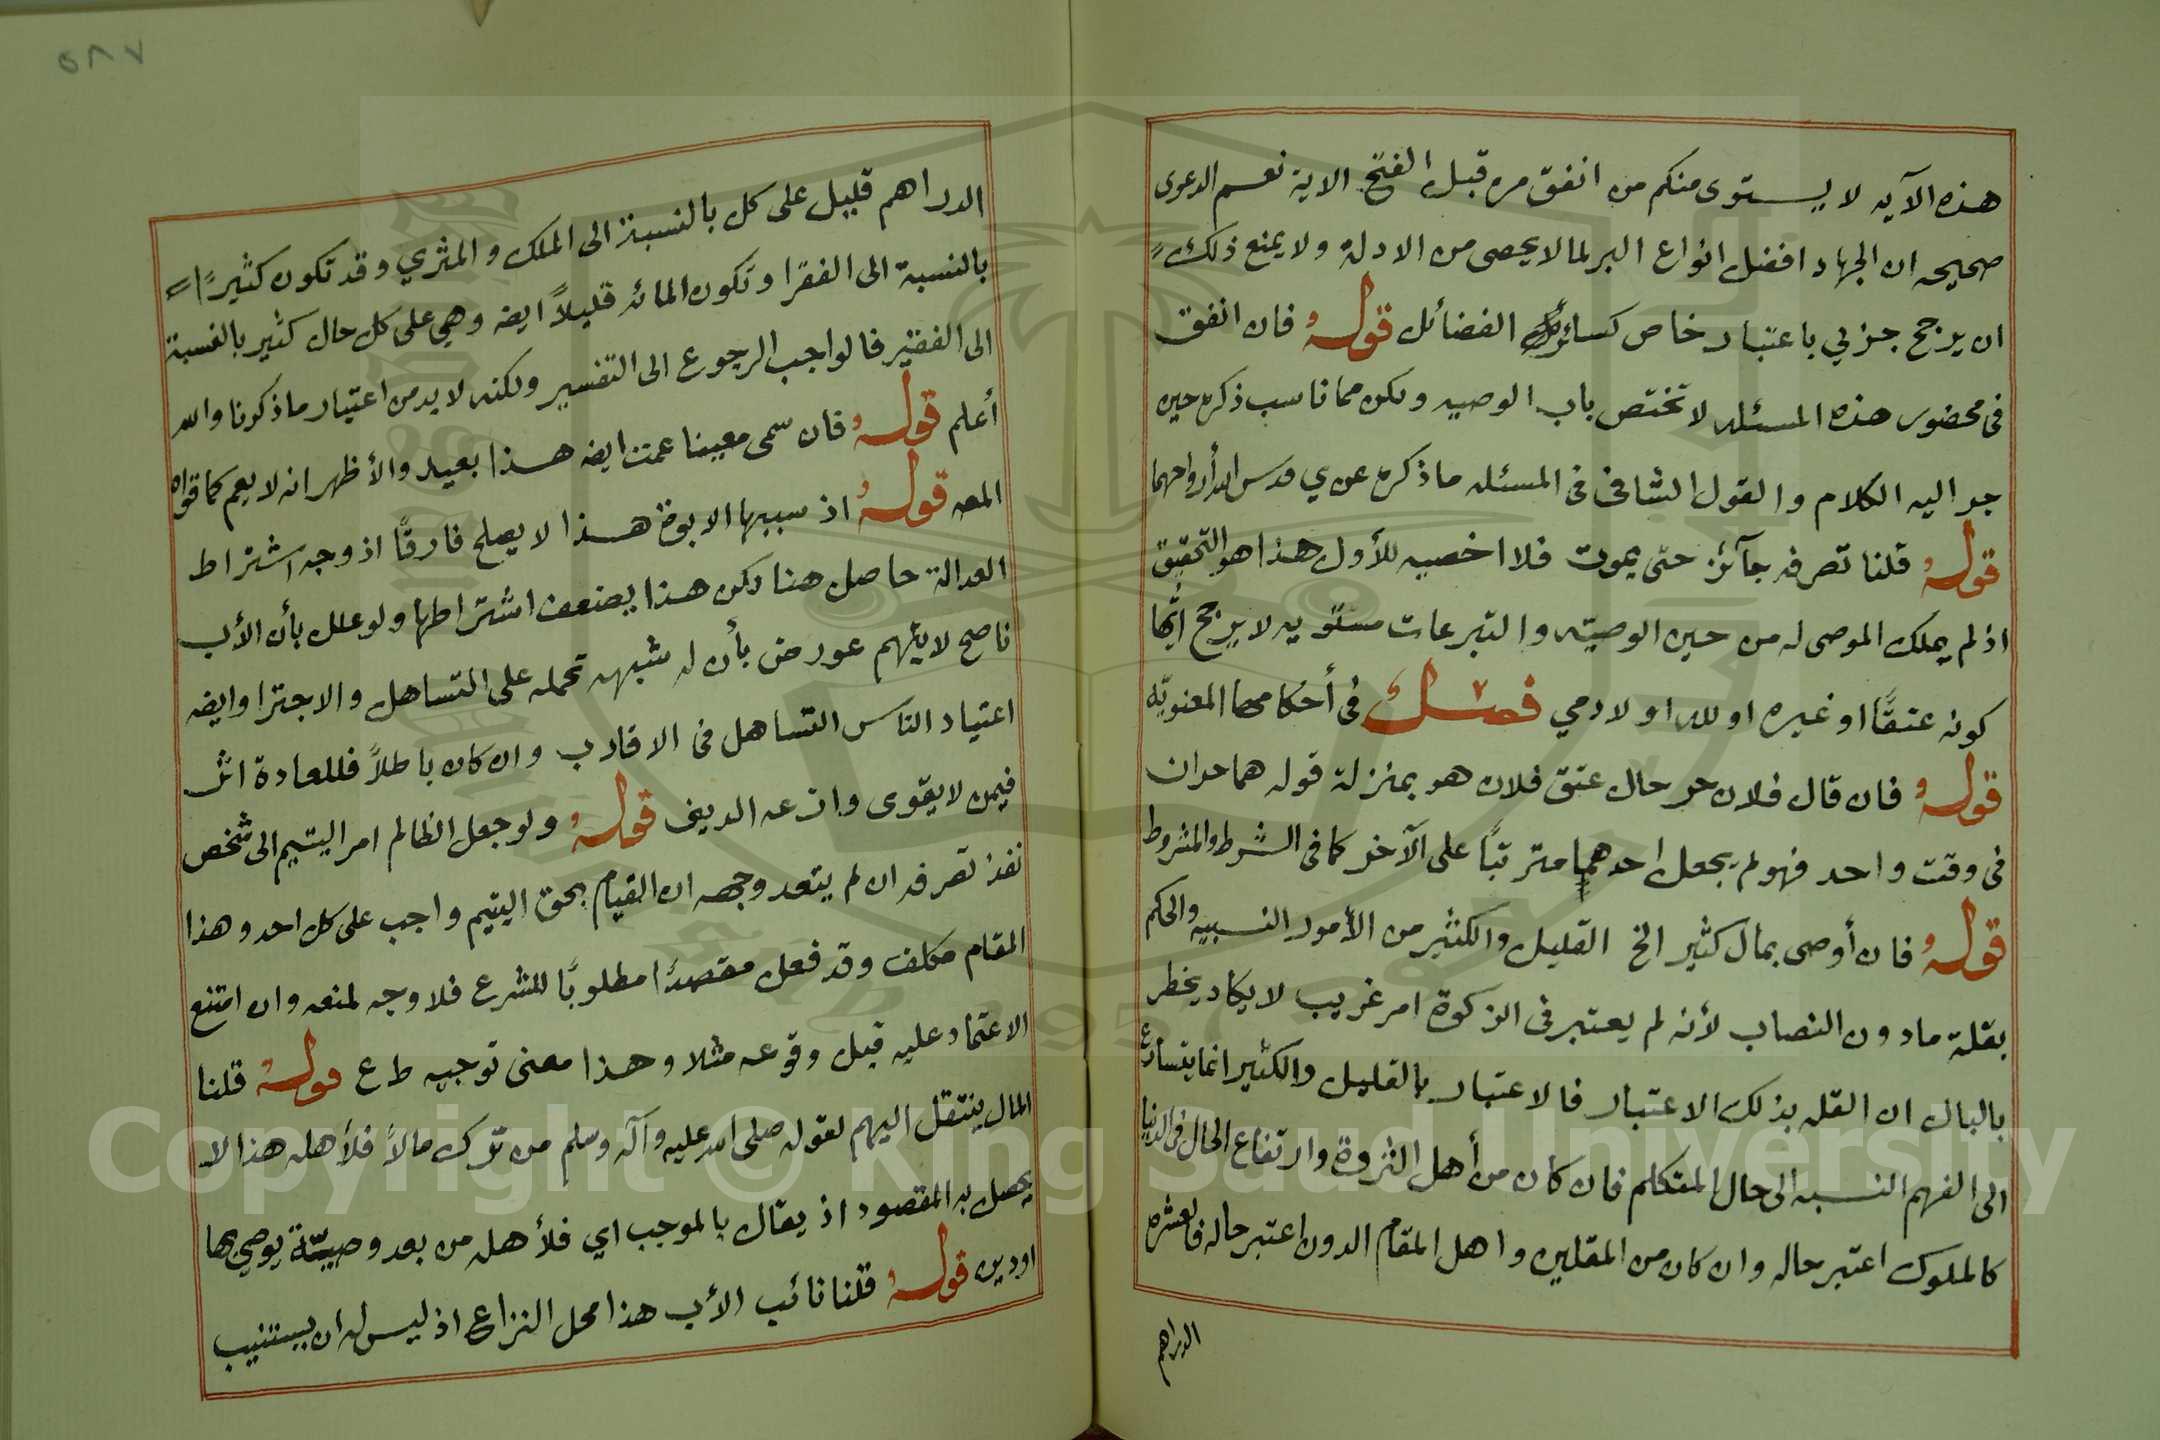 هذه الآيه لا يستوى منكم من انفق من قبل الفتح الاية نعم الدعوى
صحيحه ان الجهاد افضل انواع البر لما لا يحصى من الادلة ولا يمنع ذلك
ان يرجح جزئي باعتبار خاص كسائر الفضائل قوله فان انفق
فى هذه المسئله لا تختص باب الوصيه ولكن مما ناسب ذكره حين
جر اليه الكلام والقول الشافى فى المسئله ما ذكره قدس الله أرواحهما
قوله قلنا تصرفه جآئز حتى يموت فلا اخصيه للأول هذا هو التحقيق
اذ لم يملك الموصى له من حين الوصيته والتبرعات مستويه لا يرجح أيها
كونه عتقًا او غيره او لله او لادمي فصل فى أحكامها المعنويّه
قوله فان قال فلان حر حال عتق فلان هو بمنزلة قوله هما حران
فى وقت واحد فهو لم يجعل احدهما مترتبًا على الآخر كما فى الشرط والمشروط
قوله فان أوصى بمال كثير الخ القليل والكثير من الأمور النسبيه والحكم
بقلة ما دون النصاب لأنه لم يعتبر فى الزكوة امر غريب لا يكاد يخطر
بالبال ان القله بذلك الاعتبار فالاعتبار بالقليل والكثير انما يتسارع
الى الفهم النسبه الى حال المتكلم فان كان من أهل الثروة وارتفاع الحال فى الدنيا
كالملوك اعتبر حاله وان كان من المقلين واهل المقام الدون اعتبر حاله فالعشره
الدراهم
٥٨٧
الدراهم قليل على كل بالنسبة الى الملك والمثري وقد تكون كثيرًا
بالنسبة الى الفقرا وتكون المائه قليلاً ايضه وهي على كل حال كثير بالنسبة
الى الفقير فالواجب الرجوع الى التفسير ولكنه لا بد من اعتبار ما ذكرنا والله
أعلم قوله فان سمى معينا عمت ايضه هذا بعيد والأظهر انه لا يعم كما قواه
المصه قوله اذ سببها الابوة هذا لا يصلح فارقًا اذ وجه اشتراط
العدالة حاصل هنا لكن هذا يضعف اشتراطها ولو علل بأن الأب
ناصح لا يتهم عورض بأن له شبهه تحمله على التساهل والاجترا وايضه
اعتياد الناس التساهل فى الاقارب وان كان باطلاً فللعادة اثر
فيمن لا يقوى وازعه الديني قوله ولو جعل الظالم امر اليتيم الى شخص
نفذ تصرفه ان لم يتعد وجهه ان القيام بحق اليتيم واجب على كل احد وهذا
المقام مكلف وقد فعل مقصدًا مطلوبًا للشرع فلا وجه لمنعه وان امتنع
الاعتماد عليه قبل وقوعه مثلا وهذا معنى توجيه ط ع قوله قلنا
المال ينتقل اليهم لقوله صلى الله عليه وآله وسلم من ترك مالاً فلأهله هذا لا
يحصل به المقصود اذ يقال بالموجب اي فلأهله من بعد وصيّة يوصي بها
او دين قوله قلنا نائب الأب هذا محل النزاع اذ ليس له ان يستنيب
Copyright © King Saud University